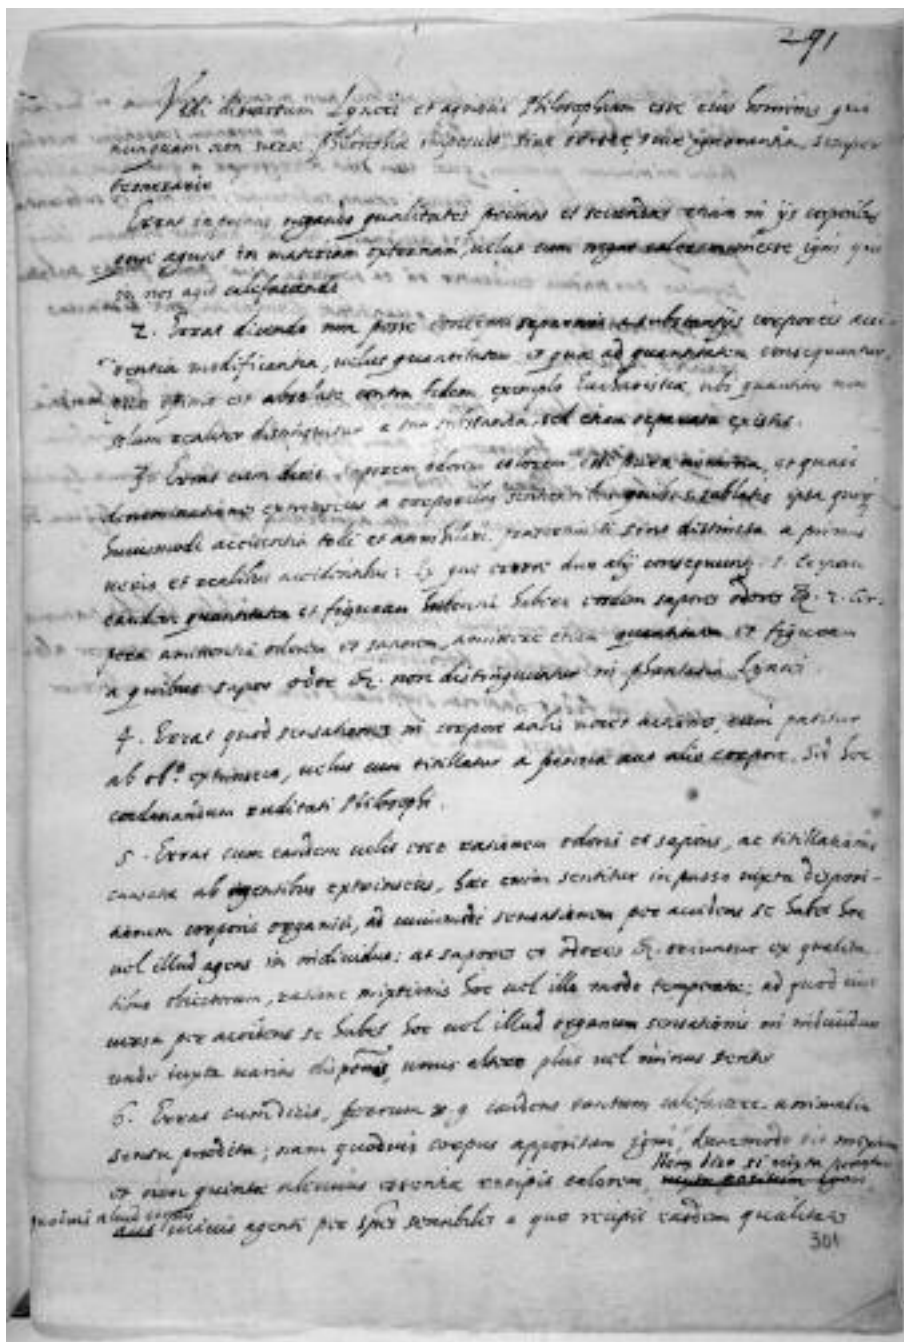 291
discursum Lyncei et agnosci Philosophiam esse eius hominis qui
nunquam non verae Philosophiae imposuit siue errore, siue ignorantia, semper
temerarie
Errat in primis negando qualitates primas et secundas etiam in ijs corporibus
quae agunt in materiam externam, uelut cum negat calorem inesse igni qui
in nos agit calefaciendo
2. Errat dicendo non posse separari a substantijs corporeis acci-
dentia modificantia, uelut quantitatem et quae ad quantitatem consequuntur,
opinio est absolute contra fidem, exemplo Eucharistiae, ubi quantitas non
solum realiter distinguitur a sua substantia, sed etiam separata existit.
3. Errat cum saporem odorem colorem esse pura nomina, et quasi
denominationes extrinsecas a corporibus sentientibus quibus sublatis ipsa quoq
huiusmodi accidentia tolli et annihilari. sint distincta a primis
ueris et realibus accidentibus: Ex quo errore duo alij consequunt. 1. Corpora
eandem quantitatem et figuram habentia habere eundem saporem odorem &c. 2. Cor-
pora amittentia odorem et saporem, amittere etiam quantitatem et figuram
a quibus sapor odor &c. non distinguuntur in phantasia Lyncei.
4. Errat quod sensationes in corpore uocet actiones, cum patitur
ab ob.o extrinseco, uelut cum titillatur a penna aut alio corpore. Sed hoc
condonandum ruditati Philosophi.
5. Errat cum eandem uelit esse rationem odoris et saporis, ac titillationis
causatae ab agentibus extrinsecis, haec enim sentitur in passo iuxta disposi-
tionem corporis organici, ad huiusmodi sensationem per accidens se habet hoc
uel illud agens in indiuiduo: at sapores et odores &c. oriuntur ex qualita-
tibus obiectorum, ratione mixtionis hoc uel illo modo temperatae; ad quod uice
uersa per accidens se habet hoc uel illud organum sensationis in indiuiduo
unde iuxta uarias dispones, unus altero plus uel minus sentit
6. Errat cum dicit, ferrum v.g. candens tantum calefacere animalia
sensu praedita; nam quoduis corpus appositum igni, dummodo sit mixtum
et non quinta alicuius essentia recipit calorem, Idem dico si iuxta ponatur
cuiuis alteri agenti per spem sensibilem a quo recipit eandem qualitatem
301